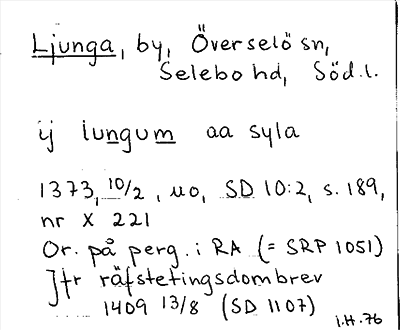 Ljunga, by, Överselö sn,
Selebo hd, Söd.l.
ij lungum aa syla
1373, 10/2, uo, SD 10:2, s. 189,
nr X 221
Or. på perg. i RA (= SRP 1051)
Jfr räfstetingsdombrev
1409 13/8 (SD 1107)
I.H. 76